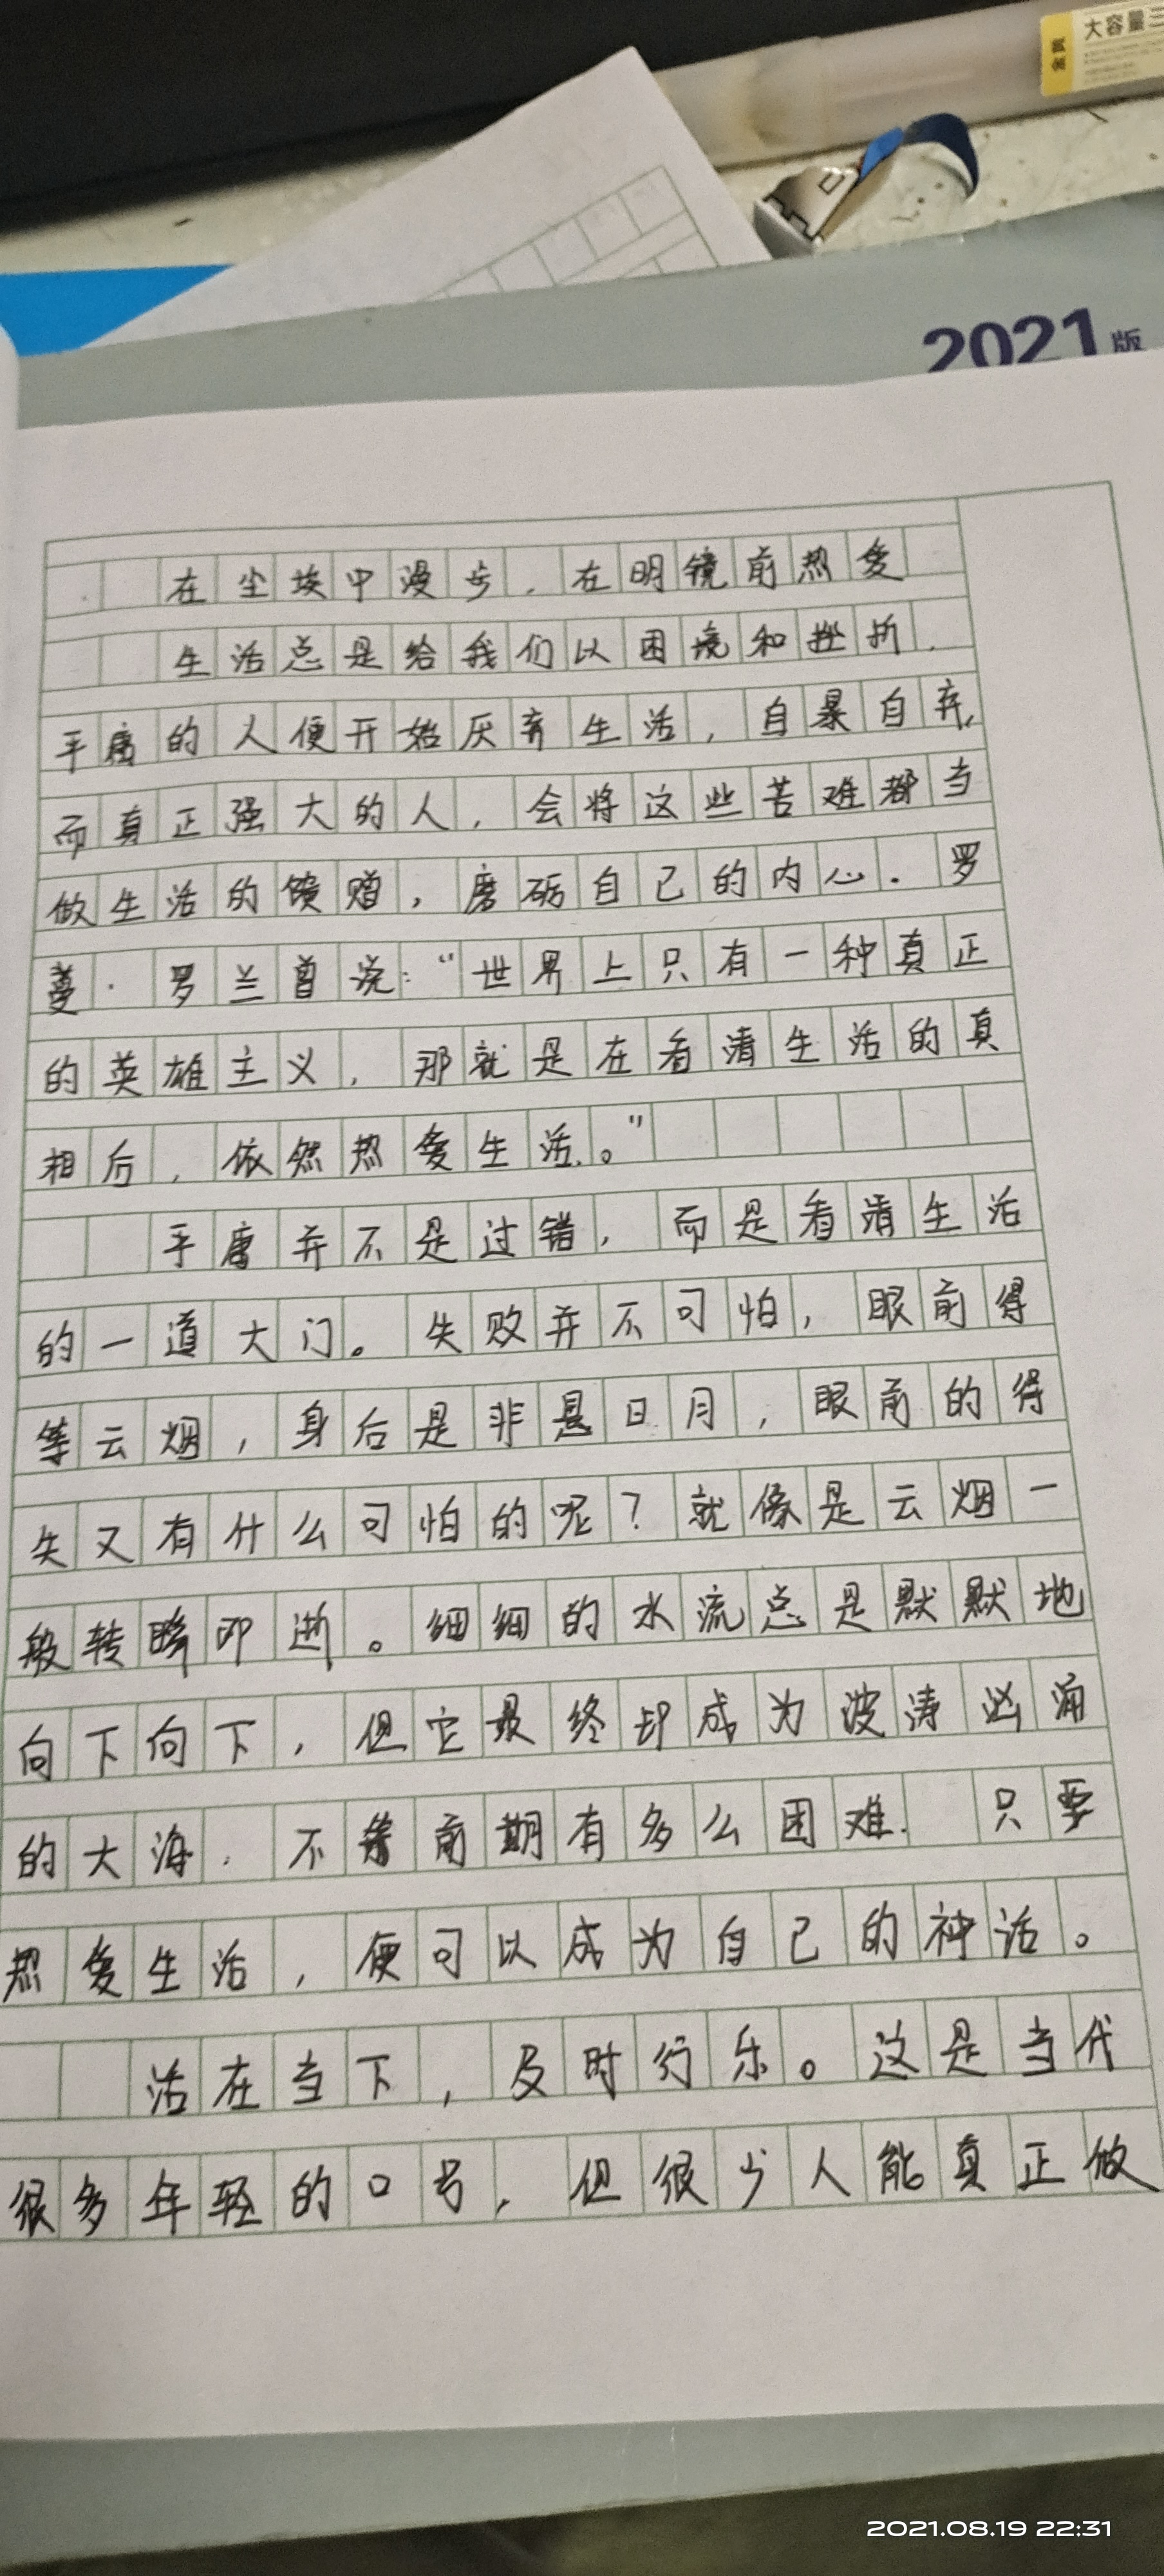 大容量三
金黄
2021版
在尘埃中漫步,在明镜前热爱
生活总是给我们以困境和挫折,
平庸的人便开始厌弃生活,自暴自弃,
而真正强大的人,会将这些苦难都当
做生活的馈赠,磨砺自己的内心.罗
曼·罗兰曾说:“世界上只有一种真正
的英雄主义,那就是在看清生活的真
相后,依然热爱生活。”
平庸并不是过错,而是看清生活
的一道大门。失败并不可怕,眼前得
等云烟,身后是非悬日月,眼前的得
失又有什么可怕的呢?就像是云烟一
般转瞬即逝。细细的水流总是默默地
向下向下,但它最终却成为波涛汹涌
的大海.不等前期有多么困难.只要
热爱生活,便可以成为自己的神话。
活在当下,及时行乐。这是当代
很多年轻的口号,但很少人能真正做
2021.08.19 22:31